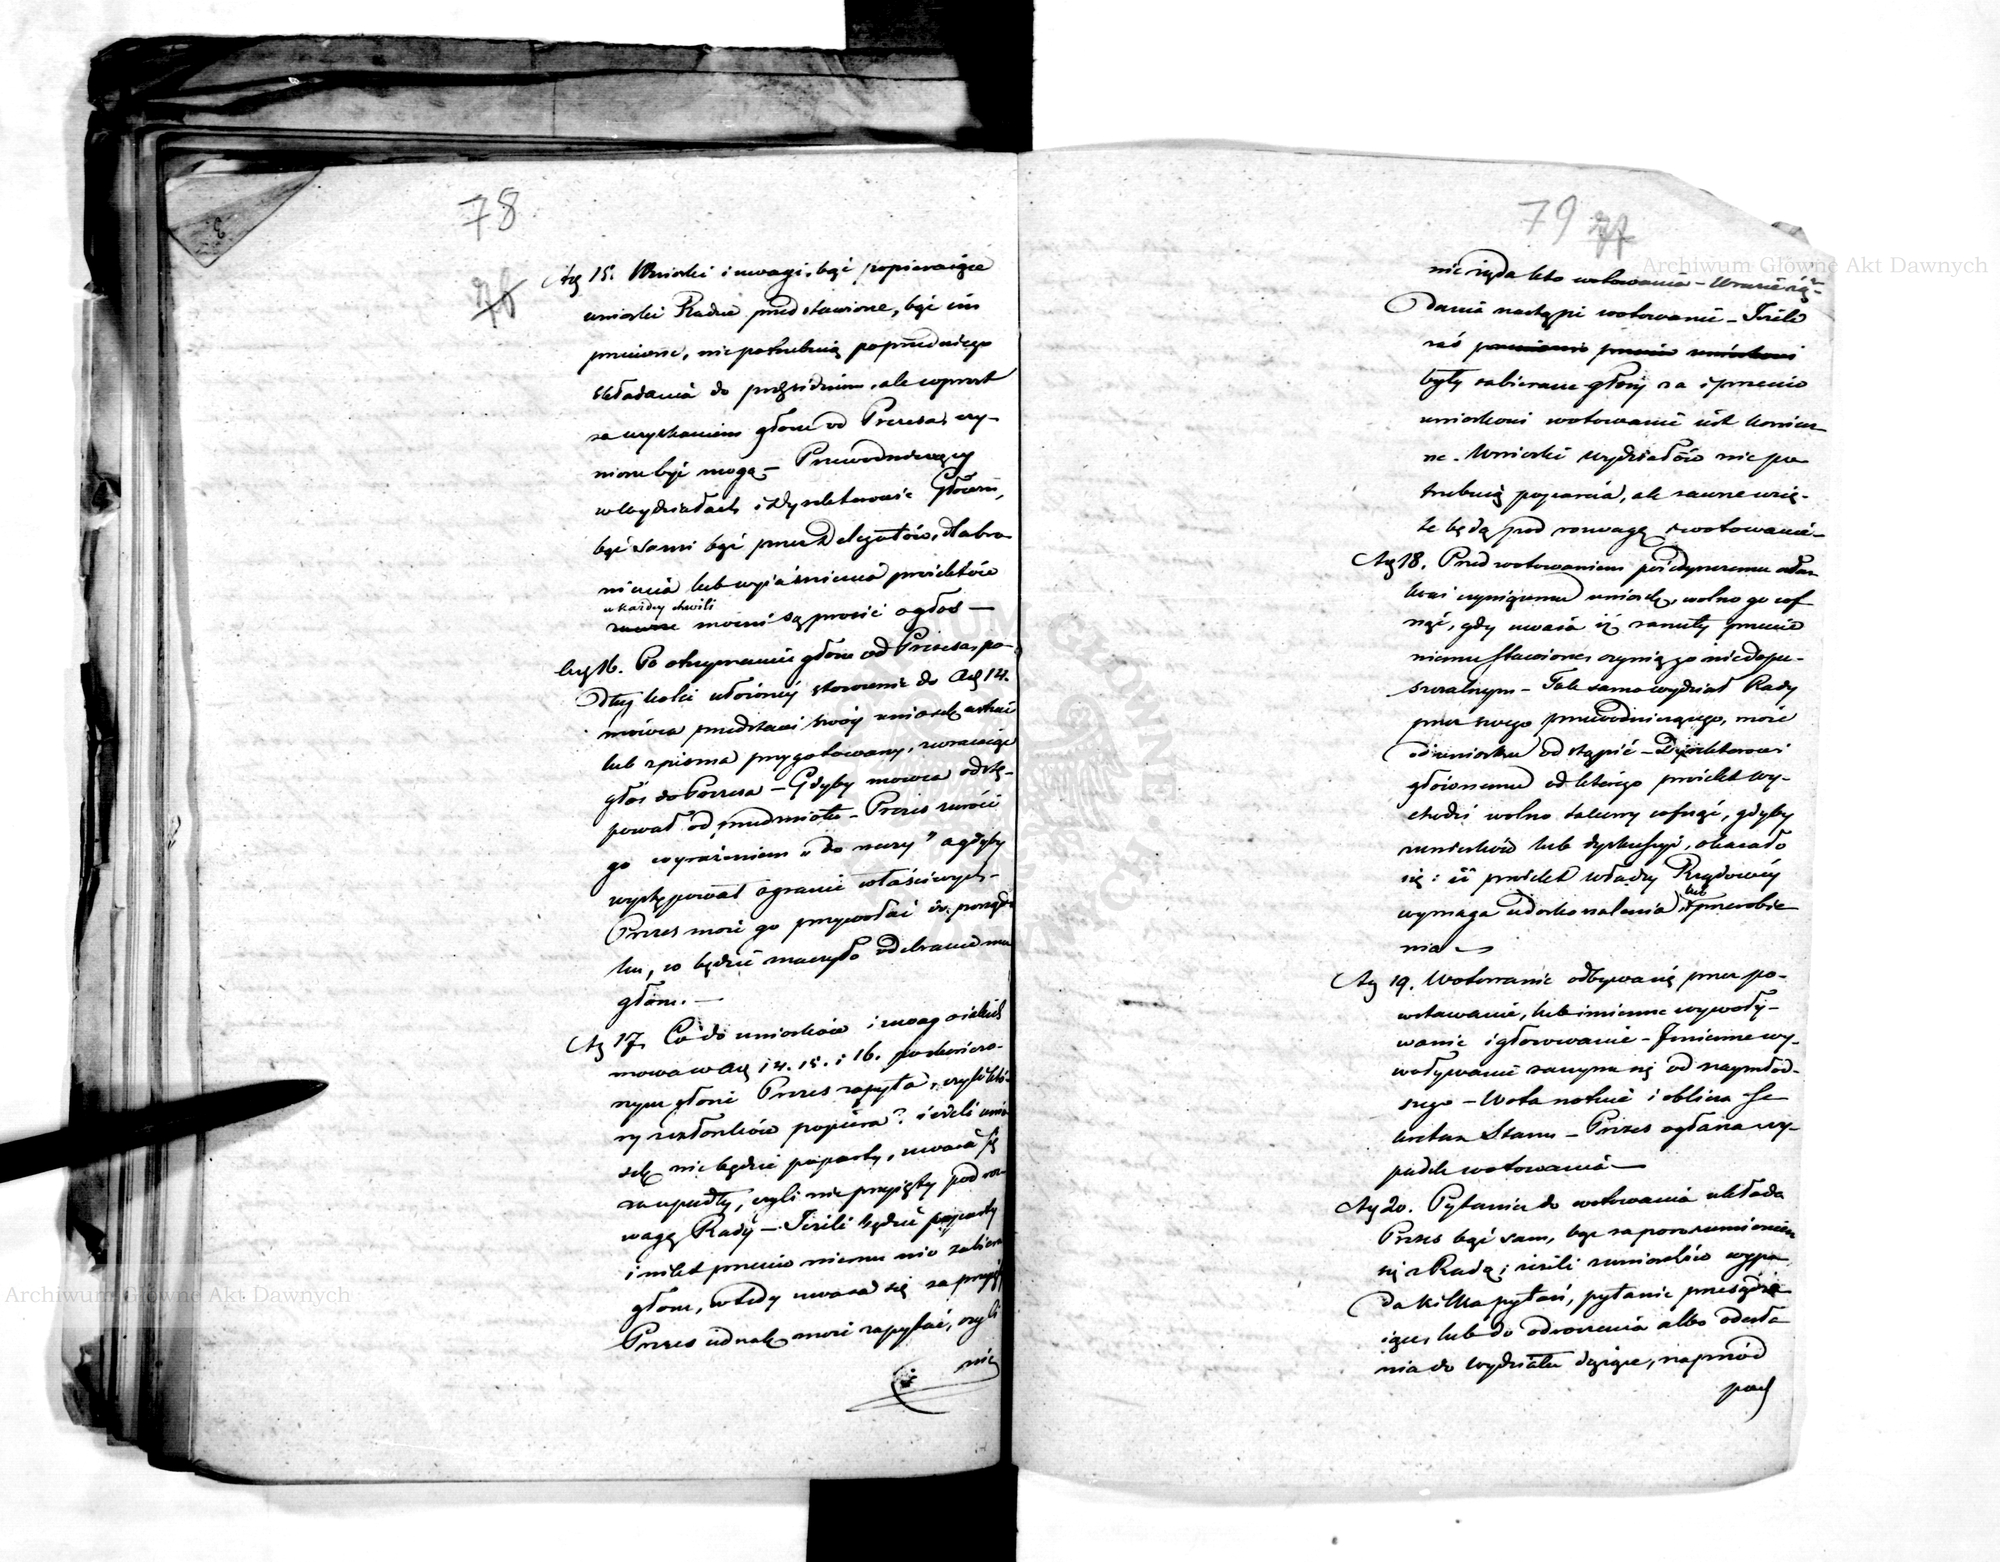 78
76
Art 15. Wnioski i uwagi, bąć popieraiące
wnioski Radzie przedstawione, bąć im
przeciwne, niepotrzebuią poprzedniego
składania do prezidium, ale wprost
za uzyskaniem głosu od Prezesa, czy-
nione być mogą – Przewodniczący
w Wydziałach i Dyrektorowie Główni,
bąć sami bąć przez Delegatów, dla bro
nienia lub wyiaśnienia proiektów
w każdey chwili
zawsze mocni są prosić o głos —
Art 16. Po otrzymaniu głosu od Prezesa, po-
dług kolei ułożonéy stosownie do Art 14.
mówca przedstawi swóy wniosek ustnie
lub z pisma przygotowany, zwracaiąc
głos do Prezesa – Gdyby mowca odstę-
pował od przedmiotu – Prezes zwróci
go wyrażeniem „do rzeczy” a gdyby
występował z granic właściwych –
Prezes może go przywołać do porząd
ku, co będzie znaczyło odebranie mu
głosu. —
Art 17. Co do wniosków i uwag o iakich
mowa w Art 14. 15. i 16. po skończo-
nym głosie Prezes zapyta, czyli któ-
ry z członków popiéra? ieżeli wnio
sek nie będzie poparty, uważa się
za upadły, czyli nie przyięty pod roz-
wagę Rady – Jeżeli będzie poparty
i nikt przeciw niemu nie zabiera
głosu, wtedy uważa się za przyięt
Prezes iednak może zapytać, czyli
nie
79 77
nie żąda kto wotowania – W razie żą-
dania nastąpi wotowanie – Jeżeli
zaś przeciwnie przeciw wnioskowi
były zabierane głosy za i przeciw
wnioskowi wotowanie iest koniecz
ne. Wnioski wydziałów nie po
trzebuią poparcia, ale zawsze wzię-
te będą pod rozwagę i wotowanie –
Art 18. Przed wotowaniem poiedynczemu człon
kowi czyniącemu wniosek, wolno go cof
nąć, gdy uważa iż zarzuty przeciw
niemu stawione czynią go niedopu-
szczalnym – Tak samo wydział Rady
przez swego przewodniczącego, może
od wniosku odstąpić – Dyrektorowi
głównemu od którego proiekt wy-
chodzi wolno takowy cofnąć, gdyby
z wniosków lub dyskussyi, okazało
się: iż proiekt władzy Rządowéy
lub
wymaga udoskonalenia i przerobie
nia —
Art 19. Wotowanie odbywa się przez po-
wstawanie, lub imienne wywoły-
wanie i głosowanie – Jmienne wy-
woływanie zaczyna się od naymłod-
szego – Wota notuie i oblicza Se
kretarz Stanu – Prezes ogłasza wy-
padek wotowania —
Art 20. Pytania do wotowania układa
Prezes bąć sam, bąć za porozumieniem
się z Radą; ieżeli z wniosków wypa
da kilka pytań, pytanie przesądza
iące, lub do odroczenia albo odesła
nia do wydziału dążące, naprzód
pod